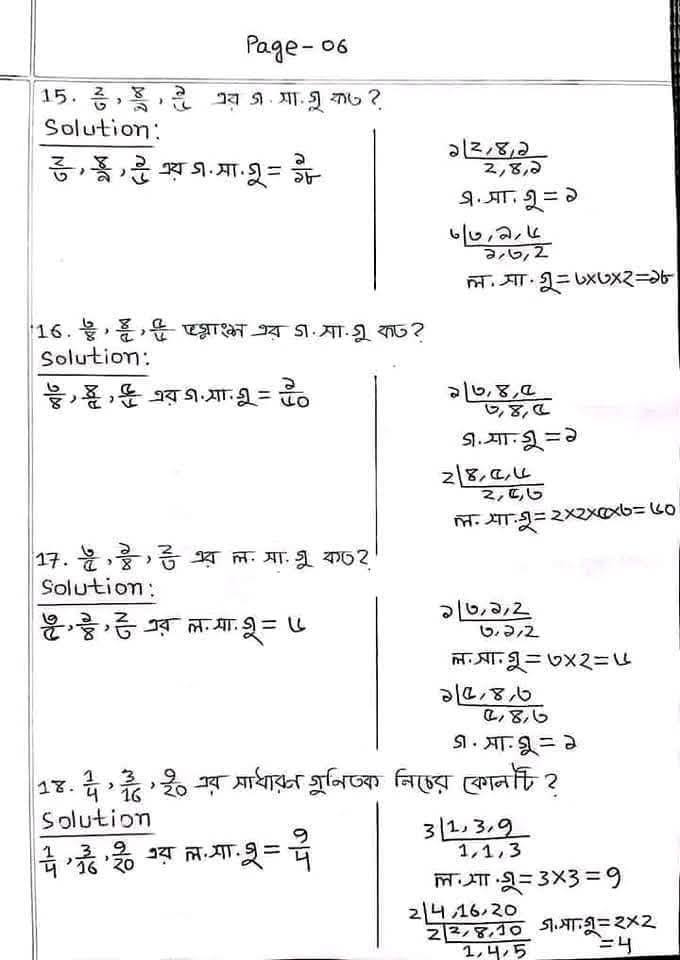 Page-06
15. ২/৩, ৪/৯, ১/৬ এর গ.সা.গু কত?
Solution:
২/৩, ৪/৯, ১/৬ এর গ.সা.গু = ১/১৮
১|২,৪,১
২,৪,১
গ.সা.গু = ১
৩|৩,৯,৬
১,৩,২
ল.সা.গু = ৩×৩×২=১৮
16. ৩/৪, ৪/৫, ৫/৬ ভগ্নাংশ এর গ.সা.গু কত?
Solution:
৩/৪, ৪/৫, ৫/৬ এর গ.সা.গু = ১/৬০
১|৩,৪,৫
৩,৪,৫
গ.সা.গু = ১
২|৪,৫,৬
২,৫,৩
ল.সা.গু=২×২×৫×৩=৬০
17. ৩/৫, ১/৪, ২/৩ এর ল.সা.গু কত?
Solution:
৩/৫, ১/৪, ২/৩ এর ল.সা.গু = ৬
১|৩,১,২
৩,১,২
ল.সা.গু = ৩×২=৬
১|৫,৪,৩
৫,৪,৩
গ.সা.গু = ১
18. 1/4, 3/16, 9/20 এর সাধারন গুনিতক নিচের কোনটি?
Solution
1/4, 3/16, 9/20 এর ল.সা.গু = 9/4
3|1,3,9
1,1,3
ল.সা.গু = 3×3=9
2|4,16,20
2|2,8,10
1,4,5
গ.সা.গু=2×2
=4